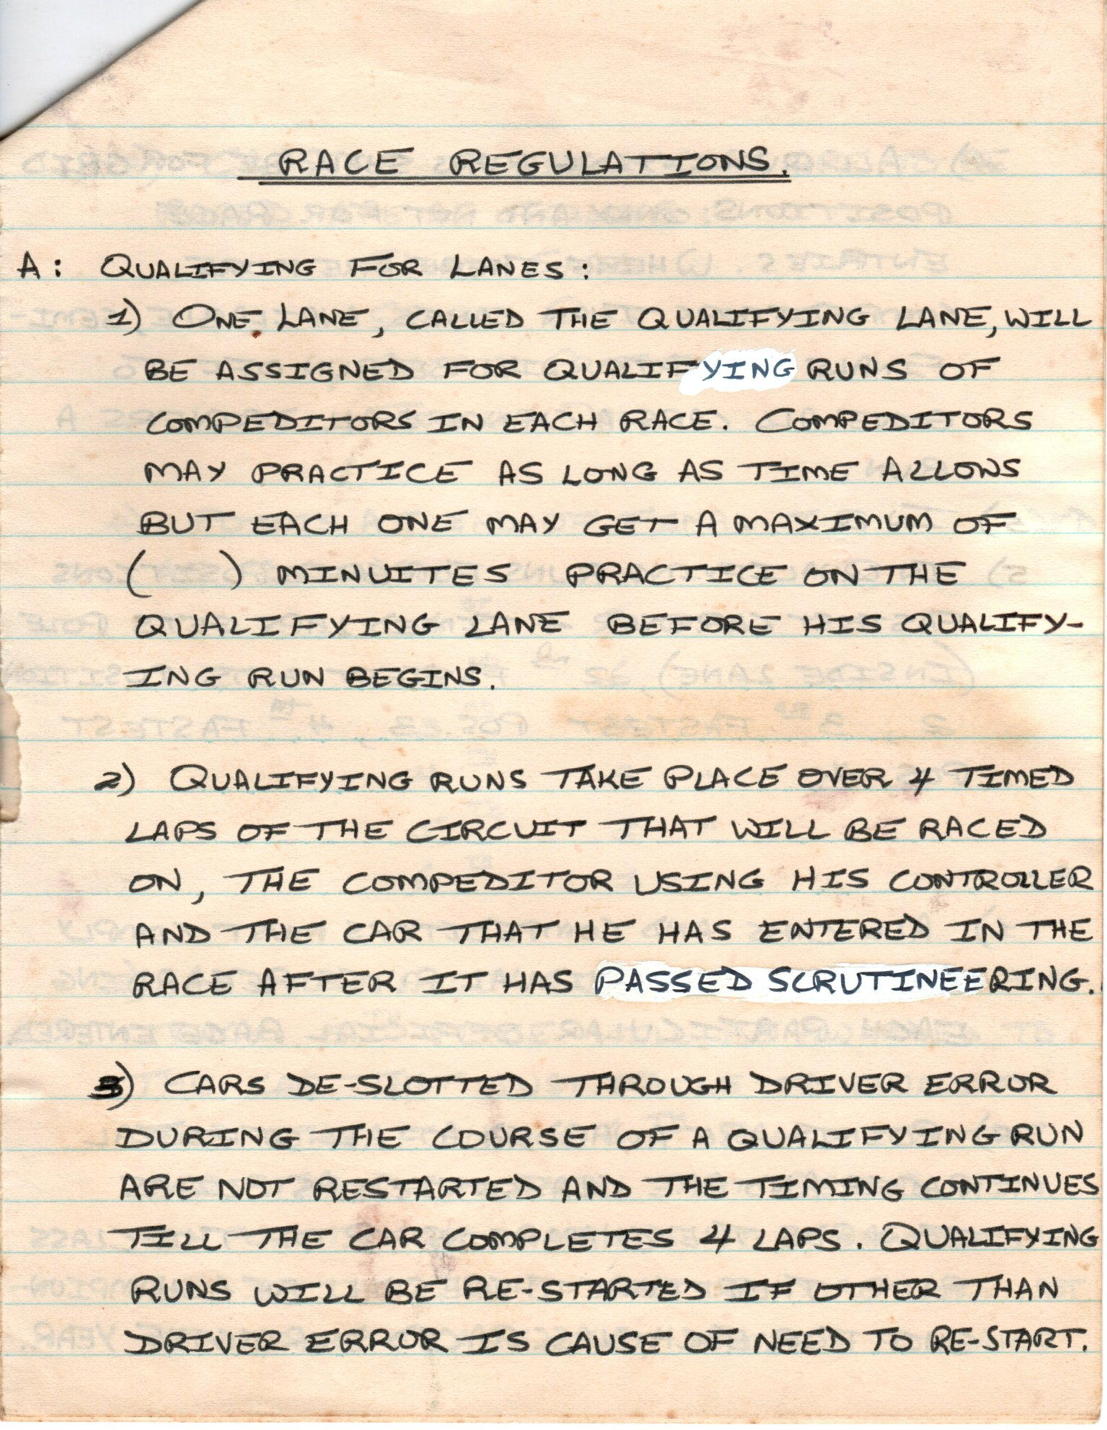 RACE REGULATIONS.
A: QUALIFYING FOR LANES:
1) ONE LANE, CALLED THE QUALIFYING LANE, WILL
BE ASSIGNED FOR QUALIFYING RUNS OF
COMPEDITORS IN EACH RACE. COMPEDITORS
MAY PRACTICE AS LONG AS TIME ALLOWS
BUT EACH ONE MAY GET A MAXIMUM OF
(    ) MINUITES PRACTICE ON THE
QUALIFYING LANE BEFORE HIS QUALIFY-
ING RUN BEGINS.
2) QUALIFYING RUNS TAKE PLACE OVER 4 TIMED
LAPS OF THE CIRCUIT THAT WILL BE RACED
ON, THE COMPEDITOR USING HIS CONTROLLER
AND THE CAR THAT HE HAS ENTERED IN THE
RACE AFTER IT HAS PASSED SCRUTINEERING.
3) CARS DE-SLOTTED THROUGH DRIVER ERROR
DURING THE COURSE OF A QUALIFYING RUN
ARE NOT RESTARTED AND THE TIMING CONTINUES
TILL THE CAR COMPLETES 4 LAPS. QUALIFYING
RUNS WILL BE RE-STARTED IF OTHER THAN
DRIVER ERROR IS CAUSE OF NEED TO RE-START.